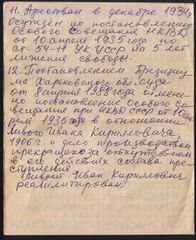 11. Арестован в декабре 1934
Осужден по постановлению
Особого Совещания НКВД
от 10 апреля 1935 года по
ст. 54-11 УК УССР на 5 лет
лишения свободы.
12. Постановлением Президиу
ма Харьковского обл. суда
от 8 апреля 1958 года отмене
но постановление Особого со
вещания при НКВД СССР от 10 ап
реля 1935 года в отношении
Ивана Кирилловича,
1906 г. и дело производством
прекращено за отсутствием
в его действиях состава прес
тупления
Иван Кириллович
реабилитирован